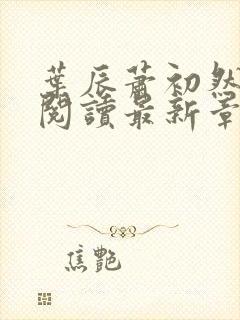 葉辰蕭初然
閱讀最新章
焦艷